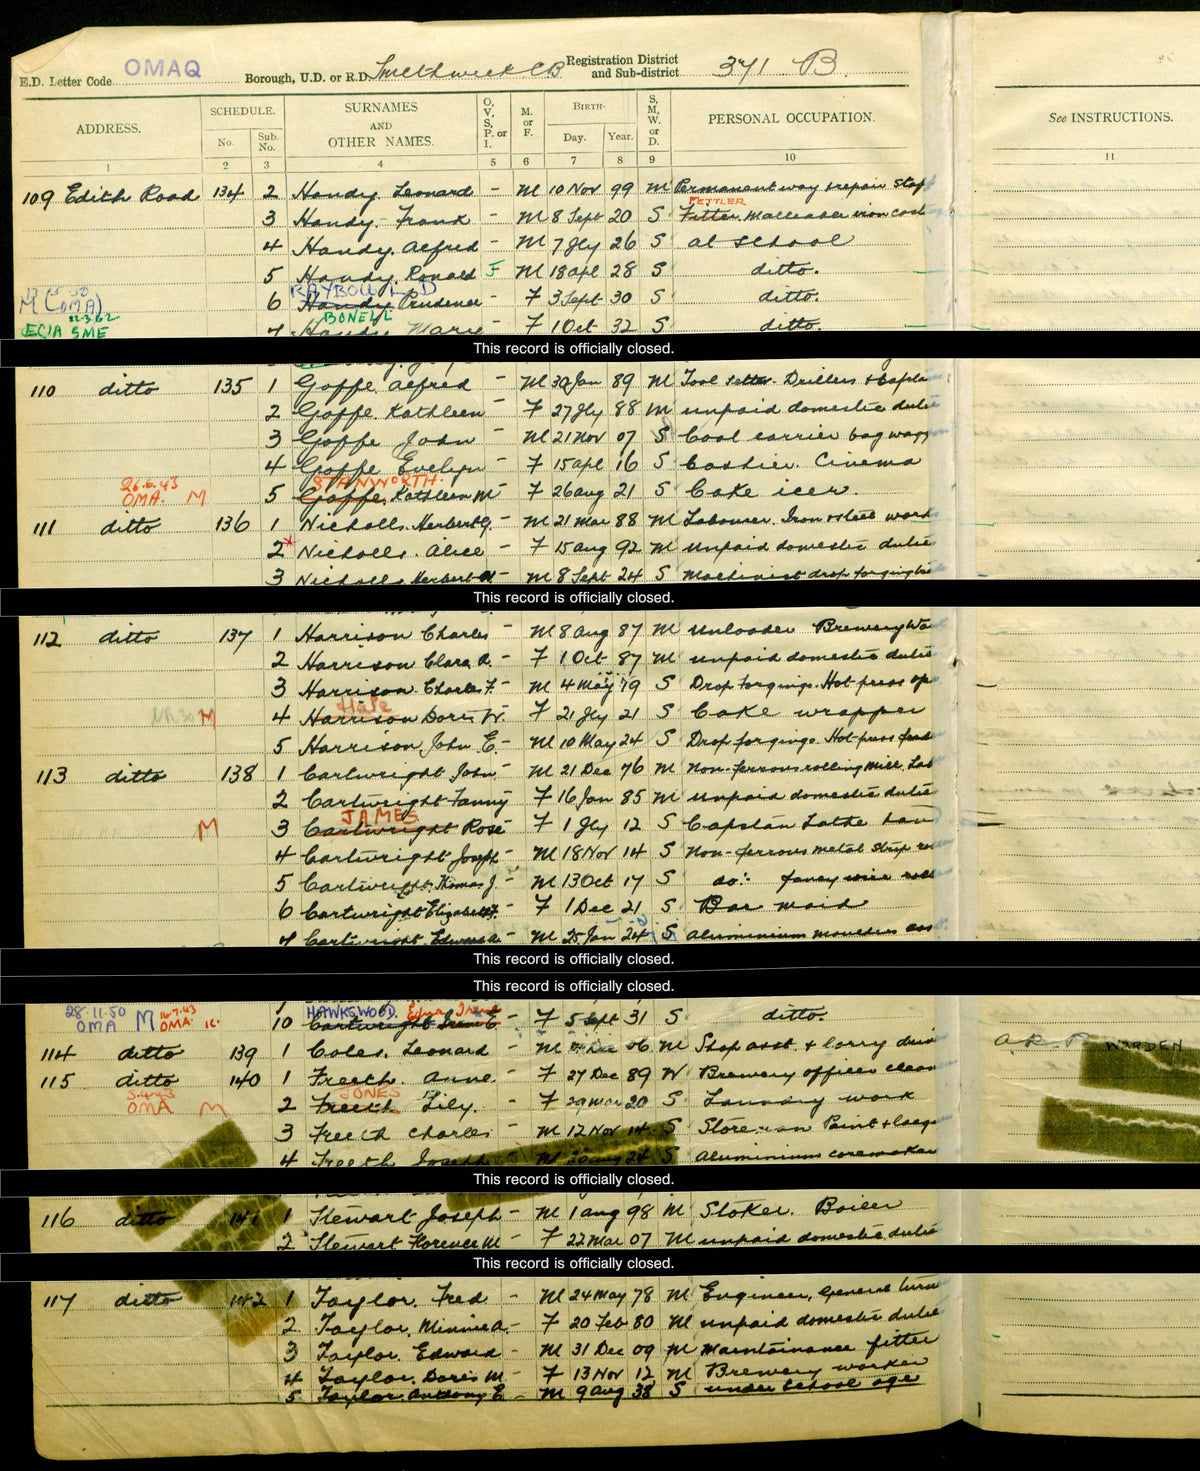 E.D. Letter Code OMAQ Borough, U.D. or R.D. Smethwick CB Registration District and Sub-district 371 B.
ADDRESS. SCHEDULE. No. Sub. No. SURNAMES AND OTHER NAMES. O, V, S, P, or I. M. or F. BIRTH- Day. Year. S, M, W, or D. PERSONAL OCCUPATION. See INSTRUCTIONS.
1 2 3 4 5 6 7 8 9 10 11
109 Edith Road 134 2 Handy. Leonard - M 10 Nov 99 M Permanent way & repair
FETTLER
3 Handy Frank - M 8 Sept 20 S Fitter. Malleable iron
4 Handy. Alfred - M 7 Jly 26 S at school
5 Handy. Ronald F M 18 apl 28 S ditto.
RAYBOULD
M (OMA) 6 Handy Prudence - F 3 Sept 30 S ditto.
22.3.62 BONELL
ECIA SME 7 Handy Marie - F 1 Oct 32 S ditto.
This record is officially closed.
110 ditto 135 1 Goffe alfred - M 30 Jan 89 M Tool setter. Drillers &
2 Goffe Kathleen - F 27 Jly 88 M unpaid domestic dutie
3 Goffe John - M 21 Nov 07 S Coal carrier bag
4 Goffe Evelyn - F 15 apl 16 S Cashier. Cinema
26.6.43 STANWORTH.
OMA. M 5 Goffe. Kathleen M - F 26 aug 21 S Cake icer.
111 ditto 136 1 Nicholls. Herbert G. - M 21 Mar 88 M Labourer. Iron & steel work
2 Nicholls. Alice - F 15 aug 92 M unpaid domestic dutie
3 Nicholls Herbert - M 8 Sept 24 S Machinist drop forging
This record is officially closed.
112 ditto 137 1 Harrison Charles - M 8 aug 87 M Unloader Brewery
2 Harrison Clara A. - F 1 Oct 87 M unpaid domestic dutie
3 Harrison. Charles F. - M 4 May 19 S Drop forgings. Hot press
Hale
M 4 Harrison Doris W. - F 21 Jly 21 S Cake wrapper
5 Harrison John E. - M 10 May 24 S Drop forgings. Hot press
113 ditto 138 1 Cartwright John - M 21 Dec 76 M Non-ferrous rolling mill. Lab
2 Cartwright Fanny F 16 Jan 85 M unpaid domestic dutie
JAMES
M 3 Cartwright Rose - F 1 Jly 12 S Capstan Lathe
4 Cartwright Joseph - M 18 Nov 14 S Non-ferrous metal strip
5 Cartwright. Thomas J. - M 13 Oct 17 S do: fancy wire
6 Cartwright Elizabeth - F 1 Dec 21 S Bar maid
7 Cartwright Edward - M 25 Jan 24 S aluminium moulders
This record is officially closed.
This record is officially closed.
28.11.50 16.7.43 HAWKSWOOD. Edna Irene
OMA M OMA. 10 Cartwright Irene E - F 5 Sept 31 S ditto.
114 ditto 139 1 Coles. Leonard - M Dec 06 M Shop asst. & lorry A.R.P. WARDEN
115 ditto 140 1 Freeth. Anne. - F 27 Dec 89 W Brewery offices clean
JONES
OMA M 2 Freeth Lily. - F 29 Mar 20 S Laundry work
3 Freeth Charles - M 12 Nov 14 S Storeman Paint &
4 Freeth Joseph - M 20 aug 24 S aluminium coremaker
This record is officially closed.
116 ditto 141 1 Stewart Joseph - M 1 aug 98 M Stoker. Boiler
2 Stewart Florence M - F 22 Mar 07 M unpaid domestic dutie
This record is officially closed.
117 ditto 142 1 Taylor. Fred - M 24 May 78 M Engineer, General turn
2 Taylor. Minnie A. - F 20 Feb 80 M unpaid domestic dutie
3 Taylor. Edward - M 31 Dec 09 M Maintainance fitter
4 Taylor. Doris M. - F 13 Nov 12 M Brewery worker
5 Taylor. Anthony E. - M 9 aug 38 S under school age